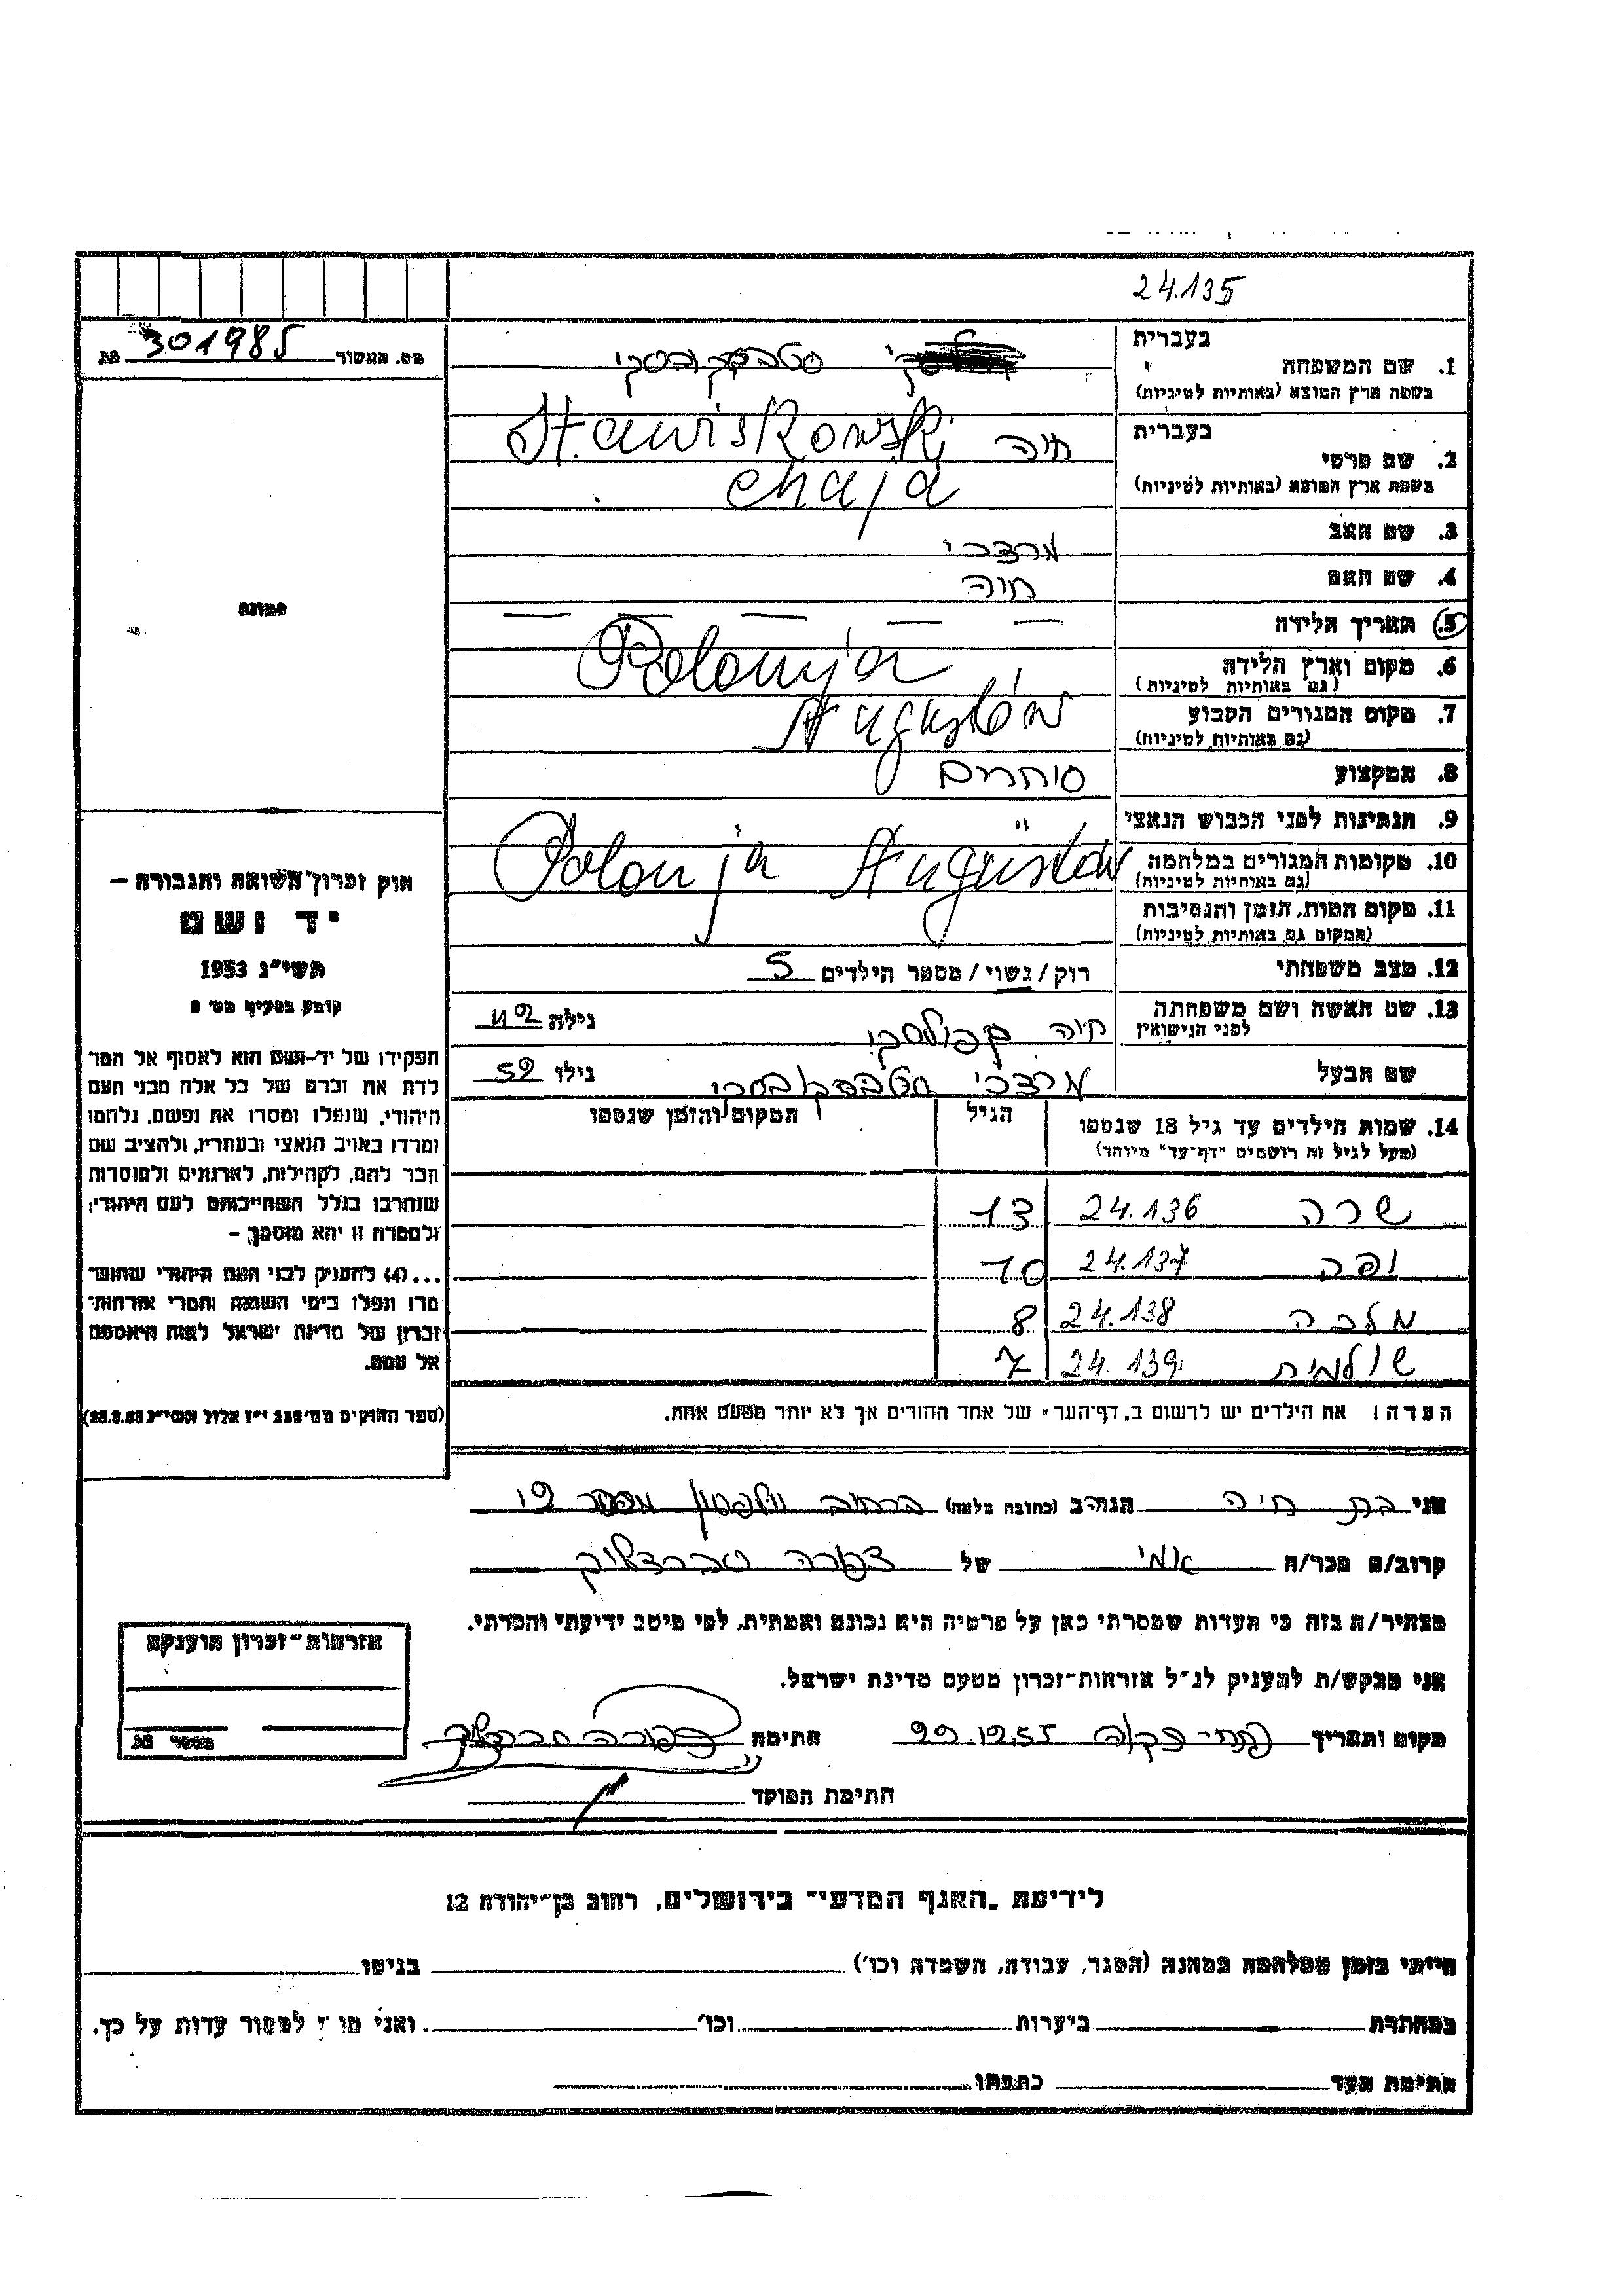 24.135
מס. האשור 301985 №
בעברית
1. שם המשפחה סטבסקובסקי
בשפת ארץ המוצא (באותיות לטיניות) Stawiskowski
בעברית חיה
2. שם פרטי
בשפת ארץ המוצא (באותיות לטיניות) chaja
3. שם האב מרדכי
4. שם האם חיה
5. תאריך הלידה — — — — —
6. מקום וארץ הלידה Polonija
(גם באותיות לטיניות)
7. מקום המגורים הקבוע Augustów
(גם באותיות לטיניות)
8. המקצוע סוחרים
9. הנתינות לפני הכבוש הנאצי "
10. מקומות המגורים במלחמה Polonja Augustów
(גם באותיות לטיניות)
11. מקום המות, הזמן והנסיבות
(המקום גם באותיות לטיניות)
12. מצב משפחתי רוק/נשוי/מספר הילדים 5
13. שם האשה ושם משפחתה חיה גילה 42
לפני הנישואין
שם הבעל מרדכי סטבסקובסקי גילו 52
14. שמות הילדים עד גיל 18 שנספו הגיל המקום והזמן שנספו
(מעל לגיל זה רושמים "דף-עד" מיוחד)
שרה 24.136 13
יפה 24.137 10
מלכה 24.138 8
שולמית 24.139 7
הערה: את הילדים יש לרשום ב„דף-העד" של אחד ההורים אך לא יותר מפעם אחת.
תמונה
חוק זכרון השואה והגבורה —
יד ושם
תשי"ג 1953
קובע בסעיף מס' 2
תפקידו של יד-ושם הוא לאסוף אל המו
לדת את זכרם של כל אלה מבני העם
היהודי, שנפלו ומסרו את נפשם, נלחמו
ומרדו באויב הנאצי ובעוזריו, ולהציב שם
וזכר להם, לקהילות, לארגונים ולמוסדות
שנחרבו בגלל השתייכותם לעם היהודי;
ולמטרה זו יהא מוסמך, —
...(4) להעניק לבני העם היהודי שהוש־
מדו ונפלו בימי השואה והמרי אזרחות־
זכרון של מדינת ישראל לאות היאספם
אל עמם.
(ספר החוקים מס' 132 י"ז אלול תשי"ג 28.8.53)
אני בת חיה הגר/ה ב (כתובת מלאה) ברחוב וולפסון מספר 19
קרוב/ה מכר/ה אמי של צפורה
מצהיר/ה בזה כי העדות שמסרתי כאן על פרטיה היא נכונה ואמתית, לפי מיטב ידיעתי והכרתי.
אני מבקש/ת להעניק לנ"ל אזרחות־זכרון מטעם מדינת ישראל.
מקום ותאריך פתח-תקוה 29.12.55 חתימה צפורה
חתימת הפוקד
אזרחות־זכרון מוענקת
מספר №
לידיעת „האגף המדעי" בירושלים, רחוב בן־יהודה 12
הייתי בזמן המלחמה במחנה (הסגר, עבודה, השמדה וכו') בגיטו
במחתרת ביערות וכו' ואני מוכן למסור עדות על כך.
חתימת העד כתבתו